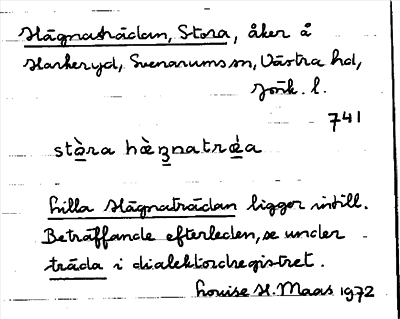 Hägnaträdan, Stora, åker å
Harkeryd, Svenarums sn, Västra hd,
Jönk. l.
741
stɷ̀ra hæ̀ŋnatrǽa
Lilla Hägnaträdan ligger intill.
Beträffande efterleden, se under
träda i dialektordregistret.
Louise H. Maas 1972